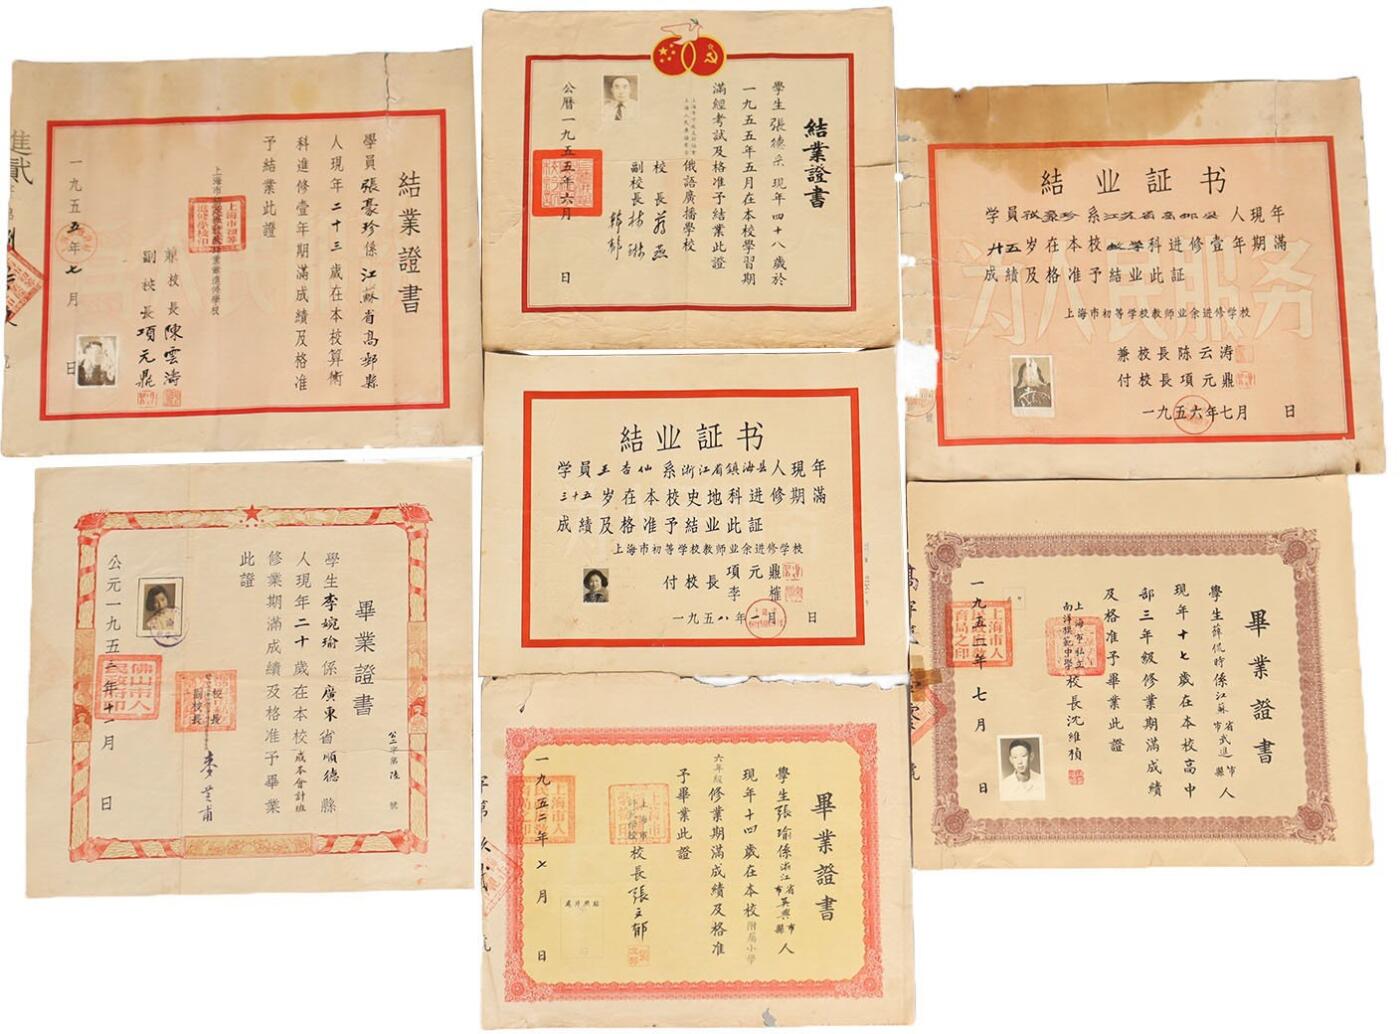 結業證書
學員張豪珍係江蘇省高郵縣
人現年二十三歲在本校算術
科進修壹年期滿成績及格准
予結業此證
兼校長陳雲濤
副校長項元鼎
一九五五年七月 日
結業證書
學生張德采現年四十八歲於
一九五五年五月在本校學習期
滿經考試及格准予結業此證
俄語廣播學校
校長
副校長
公曆一九五五年六月 日
结业証书
学員張豪珍系江苏省高邮县人現年
廿五岁在本校 科進修壹年期滿
成績及格准予結业此証
为人民服务
上海市初等学校教师业余进修学校
兼校長陈云涛
付校長項元鼎
一九五六年七月 日
結业証书
学員王杏仙系浙江省鎮海县人現年
三十五岁在本校史地科进修期滿
成績及格准予結业此証
上海市初等学校教师业余进修学校
付校長 項元鼎
李
一九五八年一月 日
畢業證書
學生李婉瑜係廣東省順德縣
人現年二十歲在本校成本會計班
修業期滿成績及格准予畢業
此證
校長
副校長
公元一九五三年十一月 日
畢業證書
學生張瑜係浙江省吳興縣市人
現年十四歲在本校附屬小學
六年級修業期滿成績及格准
予畢業此證
上海市
校長張立郁
一九五二年七月 日
貼照片處
畢業證書
學生薛侃時係江蘇省市武進縣市人
現年十七歲在本校高中
部三年級修業期滿成績
及格准予畢業此證
上海市私立
南洋模範中學
校長沈維楨
一九五二年七月 日